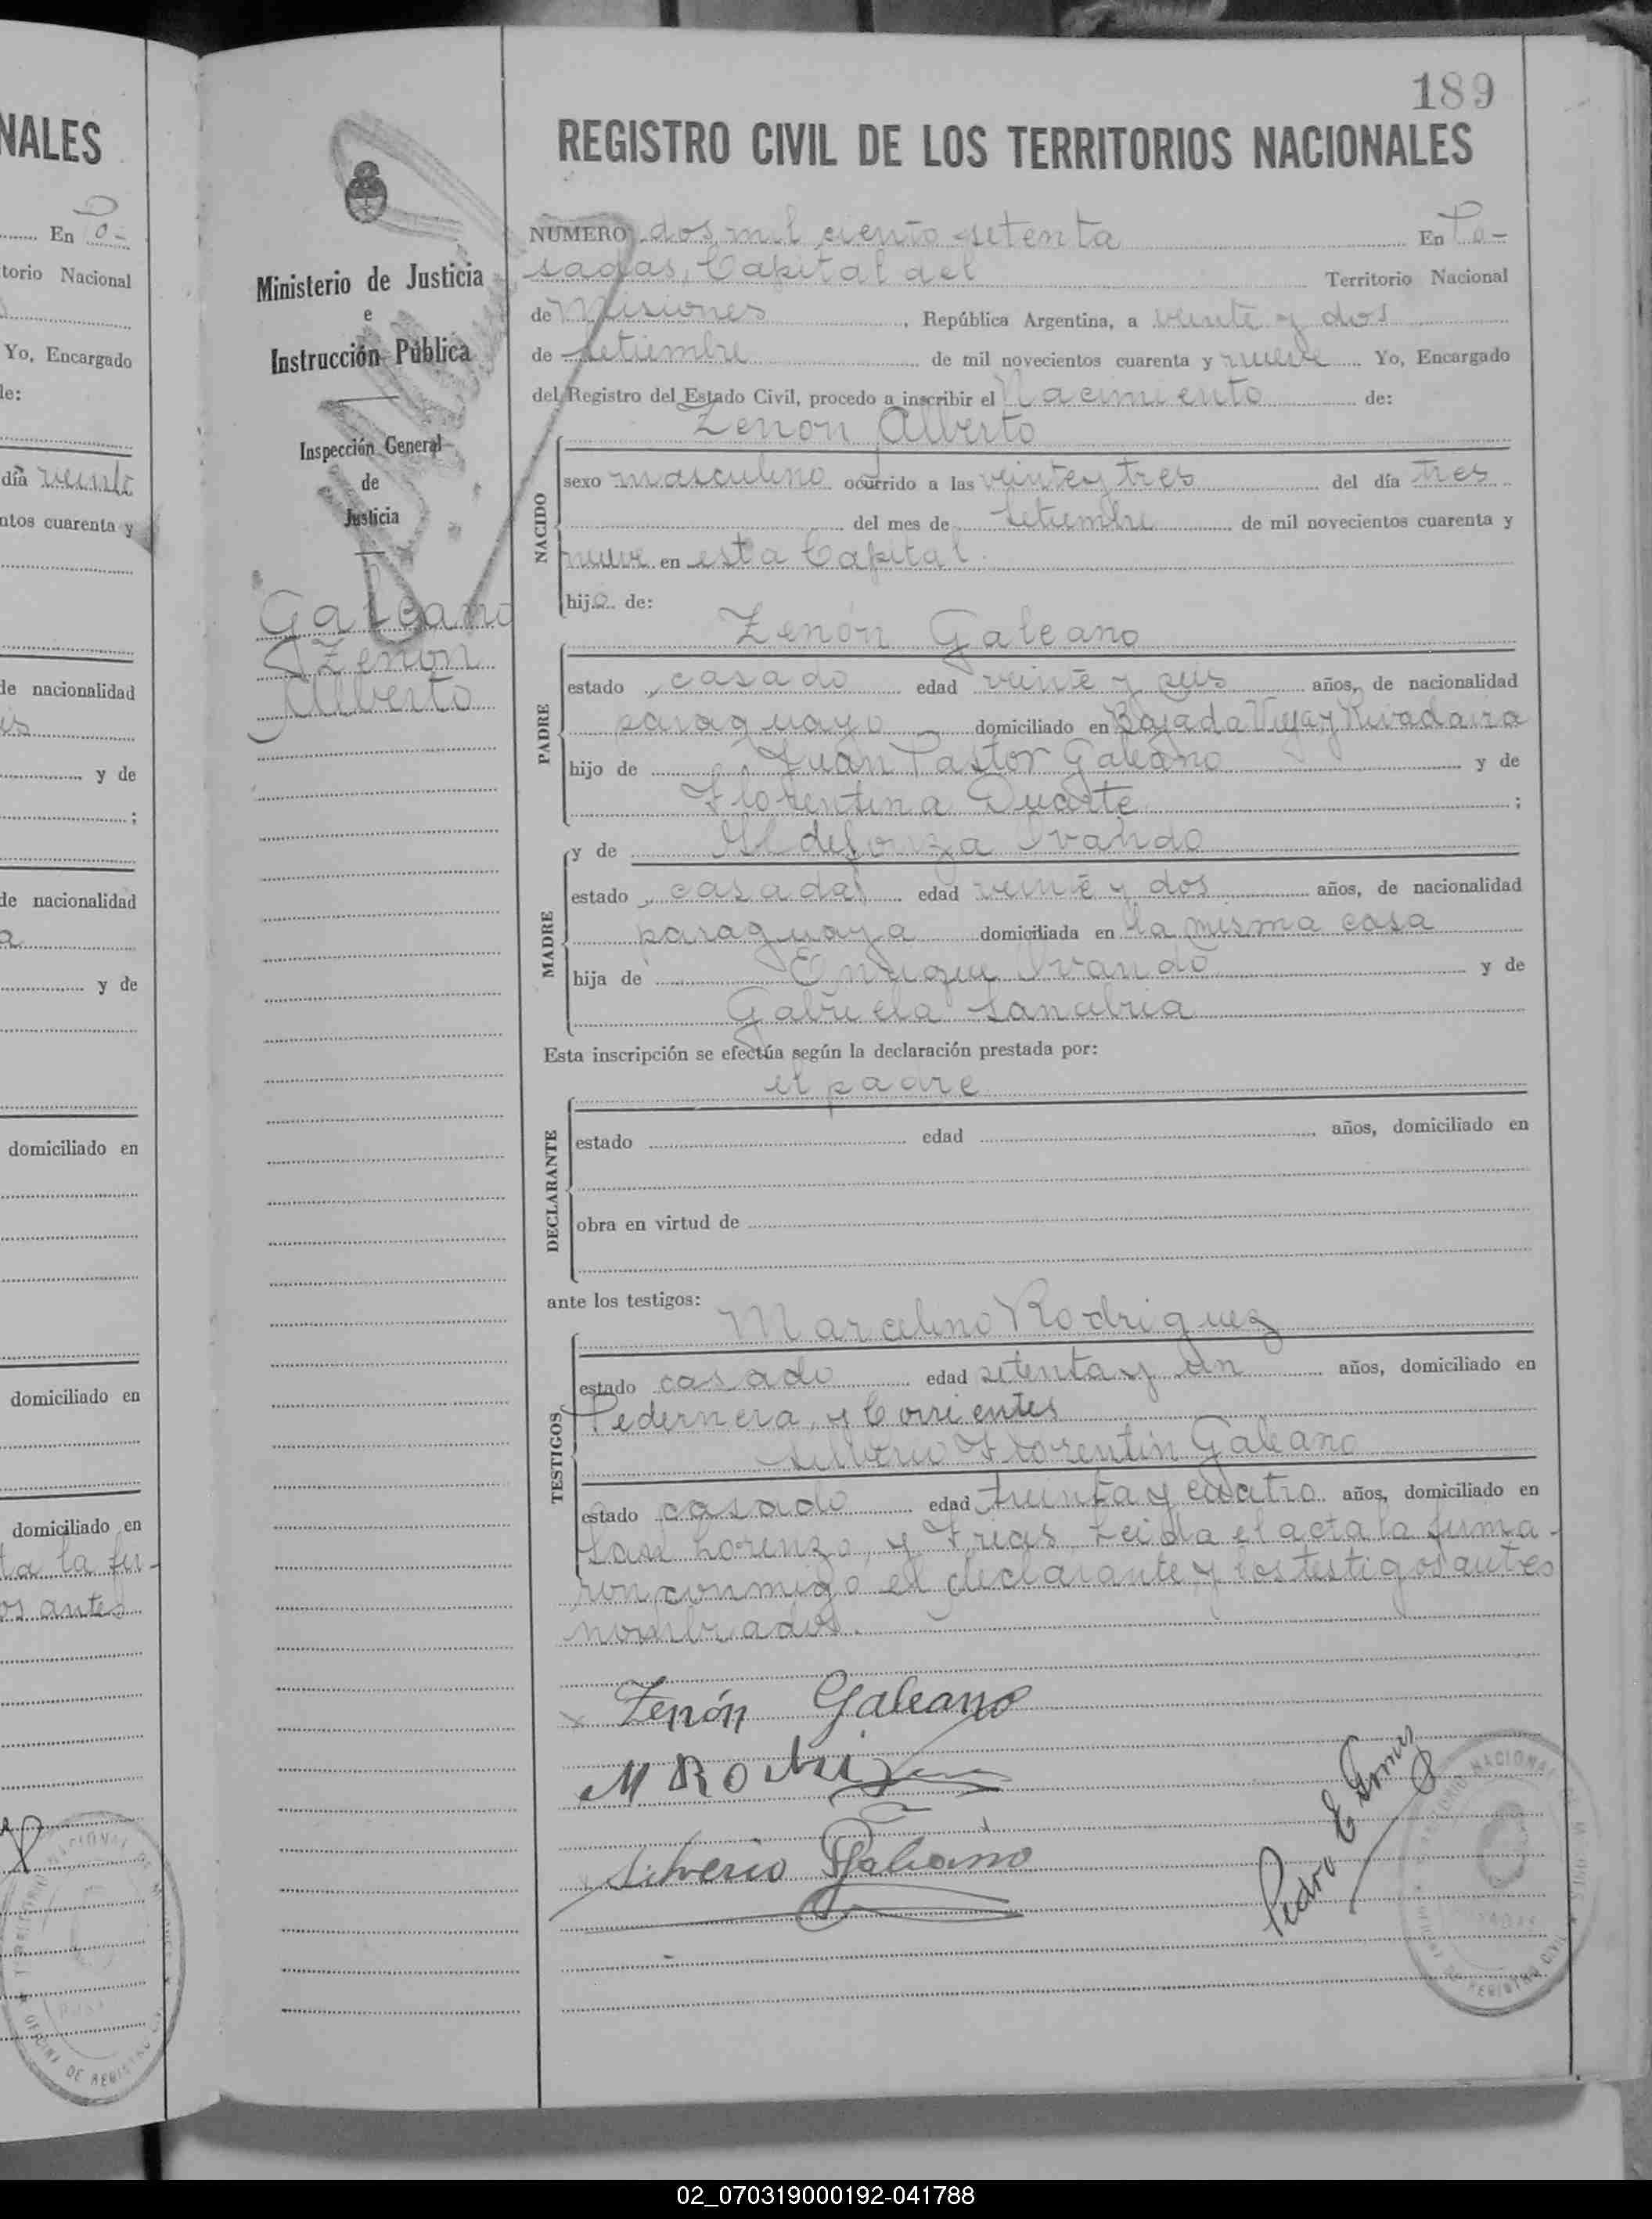 189
NALES
REGISTRO CIVIL DE LOS TERRITORIOS NACIONALES
En Po-
torio Nacional
Yo, Encargado
le:
día veinte
ntos cuarenta y
de nacionalidad
y de
;
de nacionalidad
a
y de
domiciliado en
domiciliado en
domiciliado en
ta la fir-
os antes
Ministerio de Justicia
e
Instrucción Pública
Inspección General
de
Justicia
Galeano
Zenon
Alberto
NUMERO dos mil ciento setenta En Po-
sadas, Capital del Territorio Nacional
de Misiones, República Argentina, a veinte y dos
de setiembre de mil novecientos cuarenta y nueve Yo, Encargado
del Registro del Estado Civil, procedo a inscribir el Nacimiento de:
Zenon Alberto
NACIDO
sexo masculino ocurrido a las veinte y tres del día tres
del mes de setiembre de mil novecientos cuarenta y
nueve en esta Capital.
hijo de:
Zenón Galeano
PADRE
estado casado edad veinte y seis años, de nacionalidad
paraguayo domiciliado en Bajada Vieja y Rivadavia
hijo de Juan Pastor Galeano y de
Florentina Duarte ;
y de Ildefonza Ovando
MADRE
estado casada edad veinte y dos años, de nacionalidad
paraguaya domiciliada en la misma casa
hija de Enrique Ovando y de
Gabriela Sanabria
Esta inscripción se efectúa según la declaración prestada por:
el padre
DECLARANTE
estado edad años, domiciliado en
obra en virtud de
ante los testigos:
Marcelino Rodriguez
TESTIGOS
estado casado edad setenta y un años, domiciliado en
Pedernera, y Corrientes
Silverio Florentin Galeano
estado casado edad treinta y cuatro años, domiciliado en
San Lorenzo, y Frias. Leida el acta la firma-
ron conmigo el declarante y los testigos antes
nombrados.
x Zenón Galeano
M Rodriguez
Silverio F Galeano
Pedro E Gomez
02_070319000192-041788